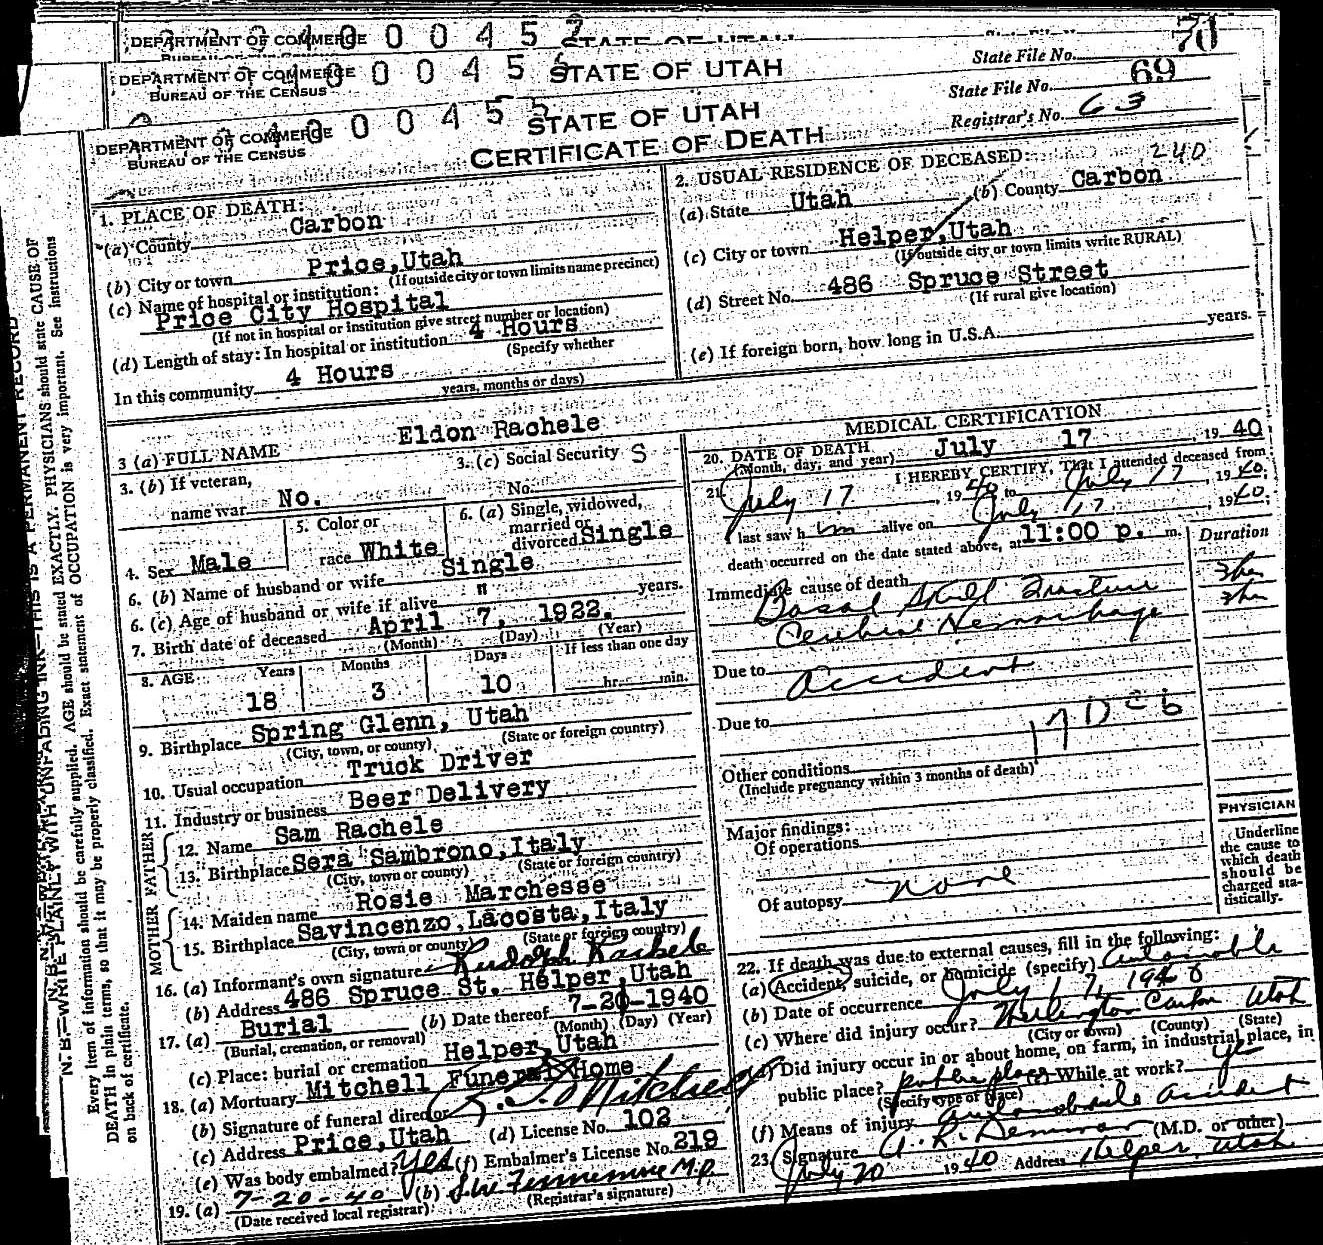 DEPARTMENT OF COMMERCE
STATE OF UTAH
State File No. 70
DEPARTMENT OF COMMERCE
BUREAU OF THE CENSUS
STATE OF UTAH
State File No. 69
DEPARTMENT OF COMMERCE
BUREAU OF THE CENSUS
STATE OF UTAH
CERTIFICATE OF DEATH
Registrar's No. 63
240
1. PLACE OF DEATH:
(a) County Carbon
(b) City or town Price, Utah
(If outside city or town limits name precinct)
(c) Name of hospital or institution:
Price City Hospital
(If not in hospital or institution give street number or location)
(d) Length of stay: In hospital or institution 4 Hours
(Specify whether
In this community 4 Hours
years, months or days)
2. USUAL RESIDENCE OF DECEASED:
(a) State Utah (b) County Carbon
(c) City or town Helper, Utah
(If outside city or town limits write RURAL)
(d) Street No. 486 Spruce Street
(If rural give location)
(e) If foreign born, how long in U.S.A. years.
3 (a) FULL NAME Eldon Rachele
3. (b) If veteran,
name war No.
3. (c) Social Security S
No.
4. Sex Male
5. Color or
race White
6. (a) Single, widowed,
married or
divorced Single
6. (b) Name of husband or wife Single
6. (c) Age of husband or wife if alive " years.
7. Birth date of deceased April 7, 1922.
(Month) (Day) (Year)
8. AGE: Years Months Days If less than one day
18 3 10 hr. min.
9. Birthplace Spring Glenn, Utah
(City, town, or county) (State or foreign country)
10. Usual occupation Truck Driver
11. Industry or business Beer Delivery
FATHER
12. Name Sam Rachele
13. Birthplace Sera Sambrono, Italy
(City, town or county) (State or foreign country)
MOTHER
14. Maiden name Rosie Marchesse
15. Birthplace Savincenzo, Lacosta, Italy
(City, town or county) (State or foreign country)
16. (a) Informant's own signature Rudolph Rachele
(b) Address 486 Spruce St. Helper, Utah
17. (a) Burial (b) Date thereof 7-20-1940
(Burial, cremation, or removal) (Month) (Day) (Year)
(c) Place: burial or cremation Helper, Utah
18. (a) Mortuary Mitchell Funeral Home
(b) Signature of funeral director Mitchell
(c) Address Price, Utah (d) License No. 102
(e) Was body embalmed? Yes (f) Embalmer's License No. 219
19. (a) 7-20-40 (b) M.D.
(Date received local registrar) (Registrar's signature)
MEDICAL CERTIFICATION
20. DATE OF DEATH July 17, 1940
(Month, day, and year)
21. I HEREBY CERTIFY, That I attended deceased from
July 17, 1940 to July 17, 1940;
last saw him alive on July 17, 1940;
death occurred on the date stated above, at 11:00 p. m.
Duration
Immediate cause of death
Basal Skull Fracture 3 hrs
Cerebral Hemorrhage 3 hrs
Due to Accident
Due to
170-b
Other conditions
(Include pregnancy within 3 months of death)
Major findings:
Of operations
Of autopsy none
PHYSICIAN
Underline
the cause to
which death
should be
charged sta-
tistically.
22. If death was due to external causes, fill in the following:
(a) Accident, suicide, or homicide (specify) Automobile
(b) Date of occurrence July 17, 1940
(c) Where did injury occur? Carbon Utah
(City or town) (County) (State)
(d) Did injury occur in or about home, on farm, in industrial place, in
public place? public place (e) While at work? Yes
(Specify type of place)
(f) Means of injury automobile accident
23. Signature (M.D. or other)
July 20 1940 Address Helper, Utah
N. B.—WRITE PLAINLY WITH UNFADING INK—THIS IS A PERMANENT RECORD
Every item of information should be carefully supplied. AGE should be stated EXACTLY. PHYSICIANS should state CAUSE OF
DEATH in plain terms, so that it may be properly classified. Exact statement of OCCUPATION is very important. See instructions
on back of certificate.